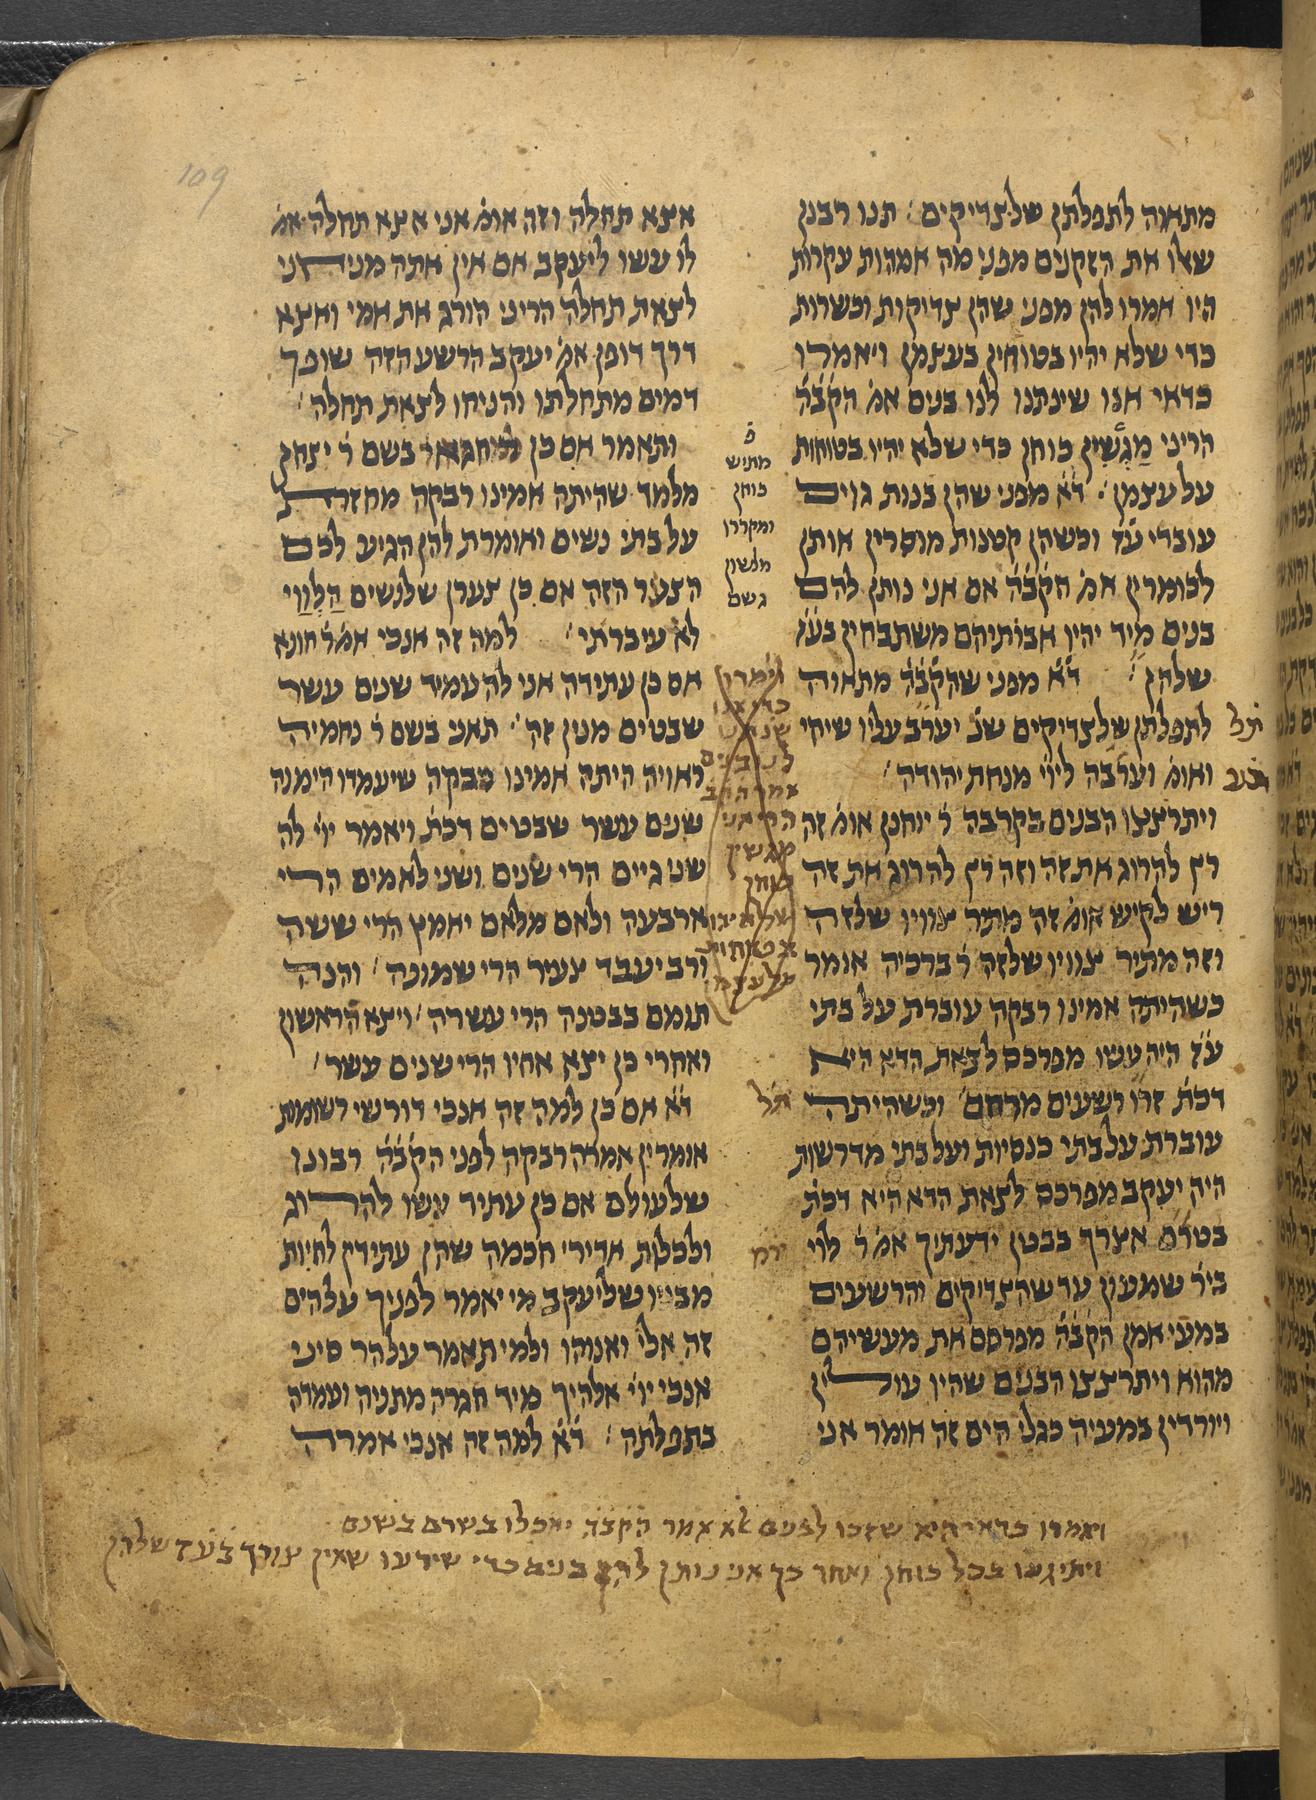 מתאוה לתפלתן שלצדיקים׃ תנו רבנן
שאלו את הזקנים מפני מה אמהות עקרות
היו אמרו להן מפני שהן צדיקות וכשרות
כדי שלא יהיו בטוחין בעצמן ויאמרו
כדאי אנו שינתנו לנו בנים אמ׳ הקב״ה
הריני מַגְשִׁין כוחן כדי שלא יהיו בטוחות
על עצמן׃ ד״א מפני שהן בנות גוים
עובדי ע״ז וכשהן קטנות מוסרין אותן
לכומרין אמ׳ הקב״ה אם אני נותן להם
בנים מיד יהיו אבותיהם משתבחין בע״ז
שלהן׃ ד״א מפני שהקב״ה מתאוה
לתפלתן שלצדיקים שנ׳ יערב עליו שיחי
ואומ׳ וערבה ליי׳ מנחת יהודה׳
ויתרצצו הבנים בקרבה ר׳ יוחנן אומ׳ זה
רץ להרוג את זה וזה רץ להרוג את זה
ריש לקיש אומ׳ זה מתיר צוויו שלזה
וזה מתיר צוויו שלזה ר׳ ברכיה אומר
כשהיתה אמינו רבקה עוברת על בתי
ע״ז היה עשו מפרכס לצאת הדא היא
דכת׳ זרו רשעים מרחם׳ וכשהיתה
עוברת על בתי כנסיות ועל בתי מדרשות
היה יעקב מפרכס לצאת הדא היא דכת׳
בטרם אצרך בבטן ידעתיך אמ׳ ר׳ לוי
ביר׳ שמעון עד שהצדיקים והרשעים
במעי אמן הקב״ה מפרסם את מעשיהם
מהוא ויתרצצו הבנים שהיו עולין
ויורדין במעיה כגלי הים זה אומר אני
פ׳
מתיש
כוחן
ומקררו
מלשון
גשם
ויאמרו
כדי אנו
לנו בנים
מגשין
כוחן
על עצמן
תל׳
תל׳
ירמ׳
אצא תחלה וזה אומ׳ אני אצא תחלה אמ׳
לו עשו ליעקב אם אין אתה מניחני
לצאת תחלה הריני הורג את אמי ואצא
דרך דופן אמ׳ יעקב הרשע הזה שופך
דמים מתחלתו והניחו לצאת תחלה׳
ותאמר אם כן בשם ר׳ יצחק
מלמד שהיתה אמינו רבקה מחזרת
על בתי נשים ואומרת להן הגיע לכם
הצער הזה אם כן צערן שלנשים הַלְוַוי
לא עיברתי׳ למה זה אנכי אמ׳ ר׳ חונא
אם כן עתידה אני להעמיד שנים עשר
שבטים מנין זה׳ תאני בשם ר׳ נחמיה
ראויה היתה אמינו רבקה שיעמדו הימנה
שנים עשר שבטים דכת׳ ויאמר יי׳ לה
שני גיים הרי שנים ושני לאמים הרי
ארבעה ולאם מלאם יאמץ הרי ששה
ורב יעבד צעיר הרי שמונה׳ והנה
תומם בבטנה הרי עשרה׳ ויצא הראשון
ואחרי כן יצא אחיו הרי שנים עשר׳
ד״א אם כן למה זה אנכי דורשי רשומות
אומרין אמרה רבקה לפני הקב״ה רבונו
שלעולם אם כן עתיד עשו להרוג
ולכלות אדירי חכמה שהן עתידין לחיות
מבניו שליעקב מי יאמר לפניך על הים
זה אלי ואנוהו ולמי תאמר על הר סיני
אנכי יי׳ אלהיך מיד חגרה מתניה ועמדה
בתפלתה׳ ד״א למה זה אנכי אמרה
ויאמרו כדאי היא שזכו לבנים אלא אמר הקב״ה יאכלו בשרם בשנם
ויתיגעו בכל כוחן ואחר כך אני נותן להן בנים כדי שידעו שאין צורך בע״ז שלהן
109